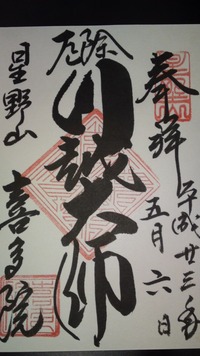 奉拝
平成廿三年五月六日
厄除
川越大師
星野山
喜多院